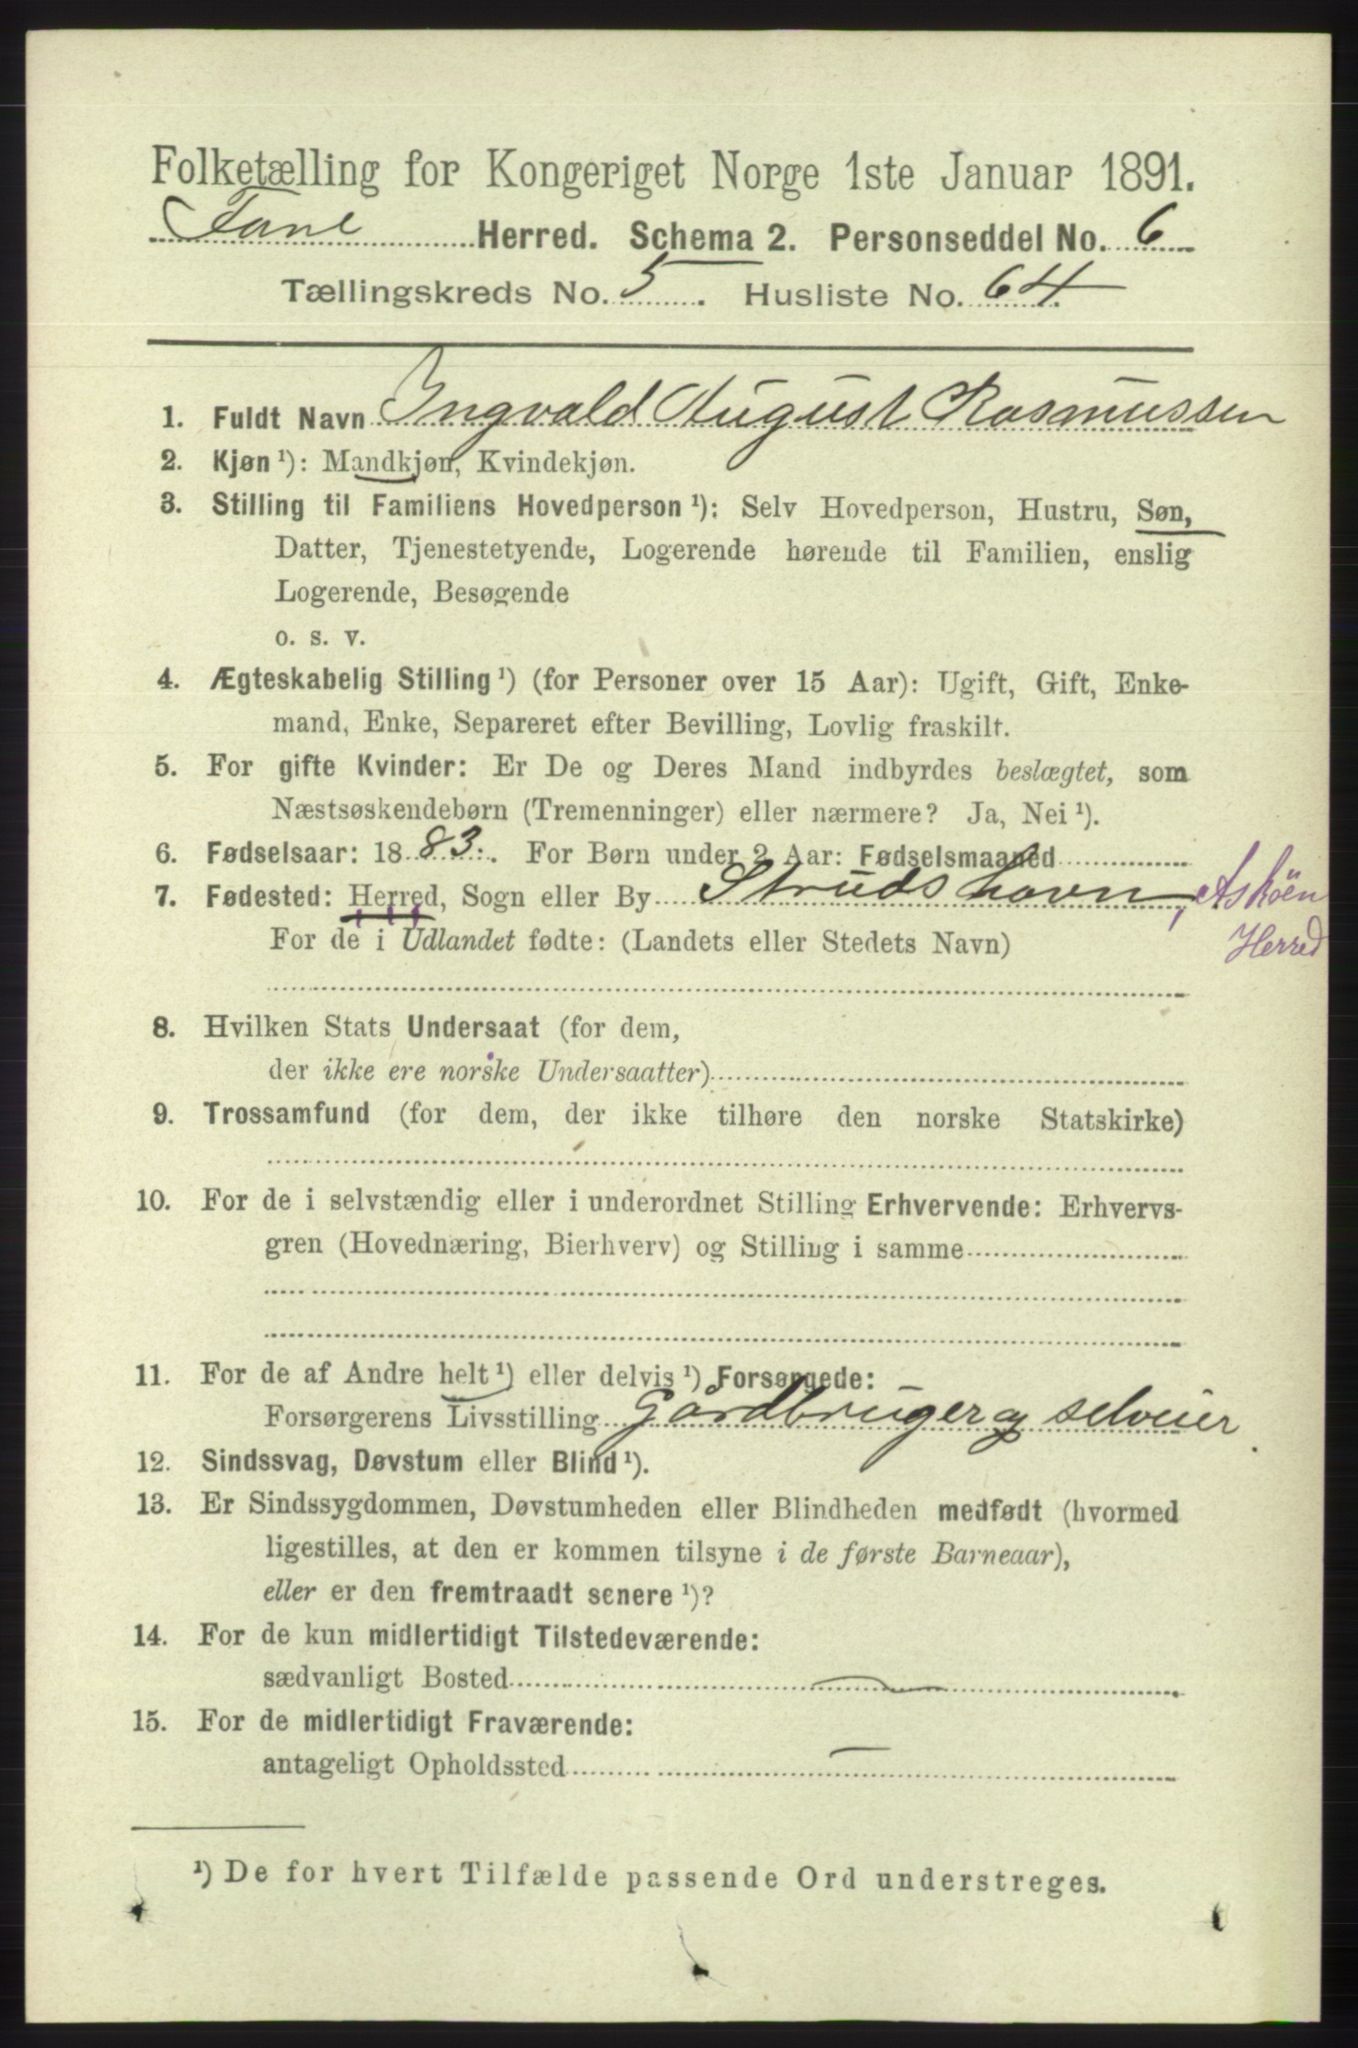 Folketælling for Kongeriget Norge 1ste Januar 1891.
Fane Herred. Schema 2. Personseddel No. 6
Tællingskreds No. 5. Husliste No. 64.
1. Fuldt Navn Ingvald August Rasmussen
2. Kjøn ¹): Mandkjøn, Kvindekjøn.
3. Stilling til Familiens Hovedperson ¹): Selv Hovedperson, Hustru, Søn,
Datter, Tjenestetyende, Logerende hørende til Familien, enslig
Logerende, Besøgende
o. s. v.
4. Ægteskabelig Stilling ¹) (for Personer over 15 Aar): Ugift, Gift, Enke-
mand, Enke, Separeret efter Bevilling, Lovlig fraskilt.
5. For gifte Kvinder: Er De og Deres Mand indbyrdes beslægtet, som
Næstsøskendebørn (Tremenninger) eller nærmere? Ja, Nei ¹).
6. Fødselsaar: 1883. For Børn under 2 Aar: Fødselsmaaned
7. Fødested: Herred, Sogn eller By Strudshavn, Askøen
Herred
For de i Udlandet fødte: (Landets eller Stedets Navn)
8. Hvilken Stats Undersaat (for dem,
der ikke ere norske Undersaatter)
9. Trossamfund (for dem, der ikke tilhøre den norske Statskirke)
10. For de i selvstændig eller i underordnet Stilling Erhvervende: Erhvervs-
gren (Hovednæring, Bierhverv) og Stilling i samme
11. For de af Andre helt ¹) eller delvis ¹) Forsørgede:
Forsørgerens Livsstilling Gårdbruger og selveier.
12. Sindssvag, Døvstum eller Blind ¹).
13. Er Sindssygdommen, Døvstumheden eller Blindheden medfødt (hvormed
ligestilles, at den er kommen tilsyne i de første Barneaar),
eller er den fremtraadt senere ¹)?
14. For de kun midlertidigt Tilstedeværende:
sædvanligt Bosted —
15. For de midlertidigt Fraværende:
antageligt Opholdssted —
¹) De for hvert Tilfælde passende Ord understreges.